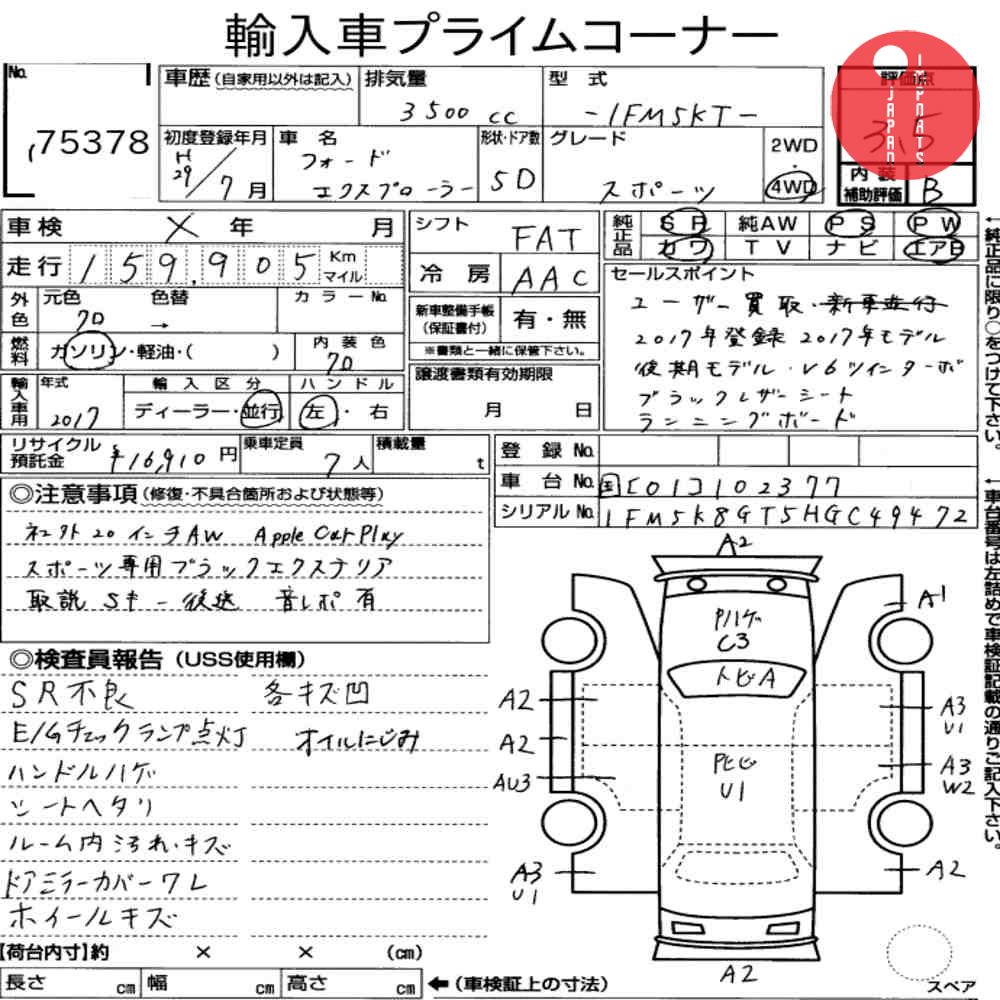 輸入車プライムコーナー
No.
75378
車歴(自家用以外は記入)
排気量
3500 cc
型 式
-1FM5KT-
評価点
3.5
JAPAN
IMPORTS
初度登録年月
H29/7月
車 名
フォード
エクスプローラー
形状・ドア数
5D
グレード
スポーツ
2WD
・
4WD
内装
補助評価
B
車検 × 年 月
走行 159,905 Km
マイル
シフト
FAT
冷房
AAC
純正品
SR 純AW PS PW
カワ TV ナビ エアB
セールスポイント
ユーザー買取・新車並行
2017年登録 2017年モデル
後期モデル・V6ツインターボ
ブラックレザーシート
ランニングボード
外色
元色 色替
クロ →
カラーNo.
燃料
ガソリン・軽油・( )
内装色
クロ
新車整備手帳
(保証書付)
有・無
※書類と一緒に保管下さい。
譲渡書類有効期限
月 日
輸入車用
年式
2017
輸入区分
ディーラー・並行
ハンドル
左・右
リサイクル
預託金
¥16,910円
乗車定員
7人
積載量
t
登録No.
車台No.
国[01]102377
シリアルNo.
1FM5K8GT5HGC49472
←純正品に限り○をつけて下さい。
←車台番号は左詰めで車検証記載の通りご記入下さい。
◎注意事項(修復・不具合箇所および状態等)
社外20インチAW Apple CarPlay
スポーツ専用ブラックエクステリア
取説 Sキー 後送 音レポ有
◎検査員報告(USS使用欄)
SR不良 各キズ凹
E/Gチェックランプ点灯 オイルにじみ
ハンドルハゲ
シートヘタリ
ルーム内汚れ・キズ
ドアミラーカバーワレ
ホイールキズ
A2
A1
Pハゲ
C3
トビA
A2
A3
U1
A2
A3
W2
AU3
Pヒビ
U1
A3
U1
A2
A2
スペア
【荷台内寸】約 × × (cm)
長さ cm 幅 cm 高さ cm ←(車検証上の寸法)